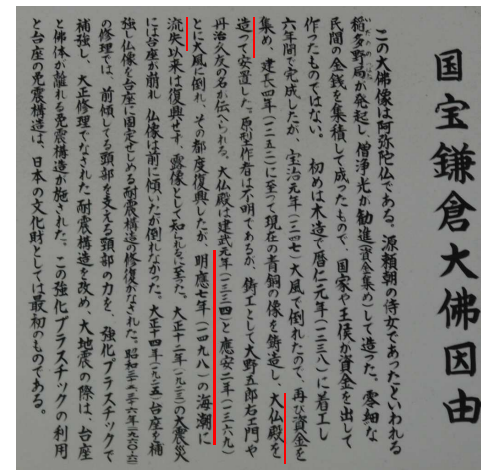 国宝鎌倉大佛因由
この大佛像は阿弥陀仏である。源頼朝の侍女であったといわれる
稲多野局が発起し、僧浄光が勧進(資金集め)して造った。零細な
民間の金銭を集積して成ったもので、国家や王侯が資金を出して
作ったものではない。 初めは木造で暦仁元年(一二三八)に着工し
六年間で完成したが、宝治元年(一二四七)大風で倒れたので、再び資金を
集め、建長四年(一二五二)に至って現在の青銅の像を鋳造し、大仏殿を
造って安置した。原型作者は不明であるが、鋳工として大野五郎右エ門や
丹治久友の名が伝へられる。大仏殿は建武元年(一三三四)と應安二年(一三六九)
とに大風に倒れ、その都度復興したが、明應七年(一四九八)の海潮に
流失以来は復興せず、露像として知られるに至った。大正十二年(一九二三)の大震災
には台座が崩れ、仏像は前に傾いたが倒れなかった。大正十四年(一九二五)台座を補
強し仏像を台座に固定せしめる耐震構造の修復がなされた。昭和三十五-三十六年(一九六〇-六一)
の修理では、前傾してる頸部を支える頸部の力を、強化プラスチックで
補強し、大正修理でなされた耐震構造を改め、大地震の際は、台座
と佛体が離れる免震構造が施された。この強化プラスチックの利用
と台座の免震構造は、日本の文化財としては最初のものである。